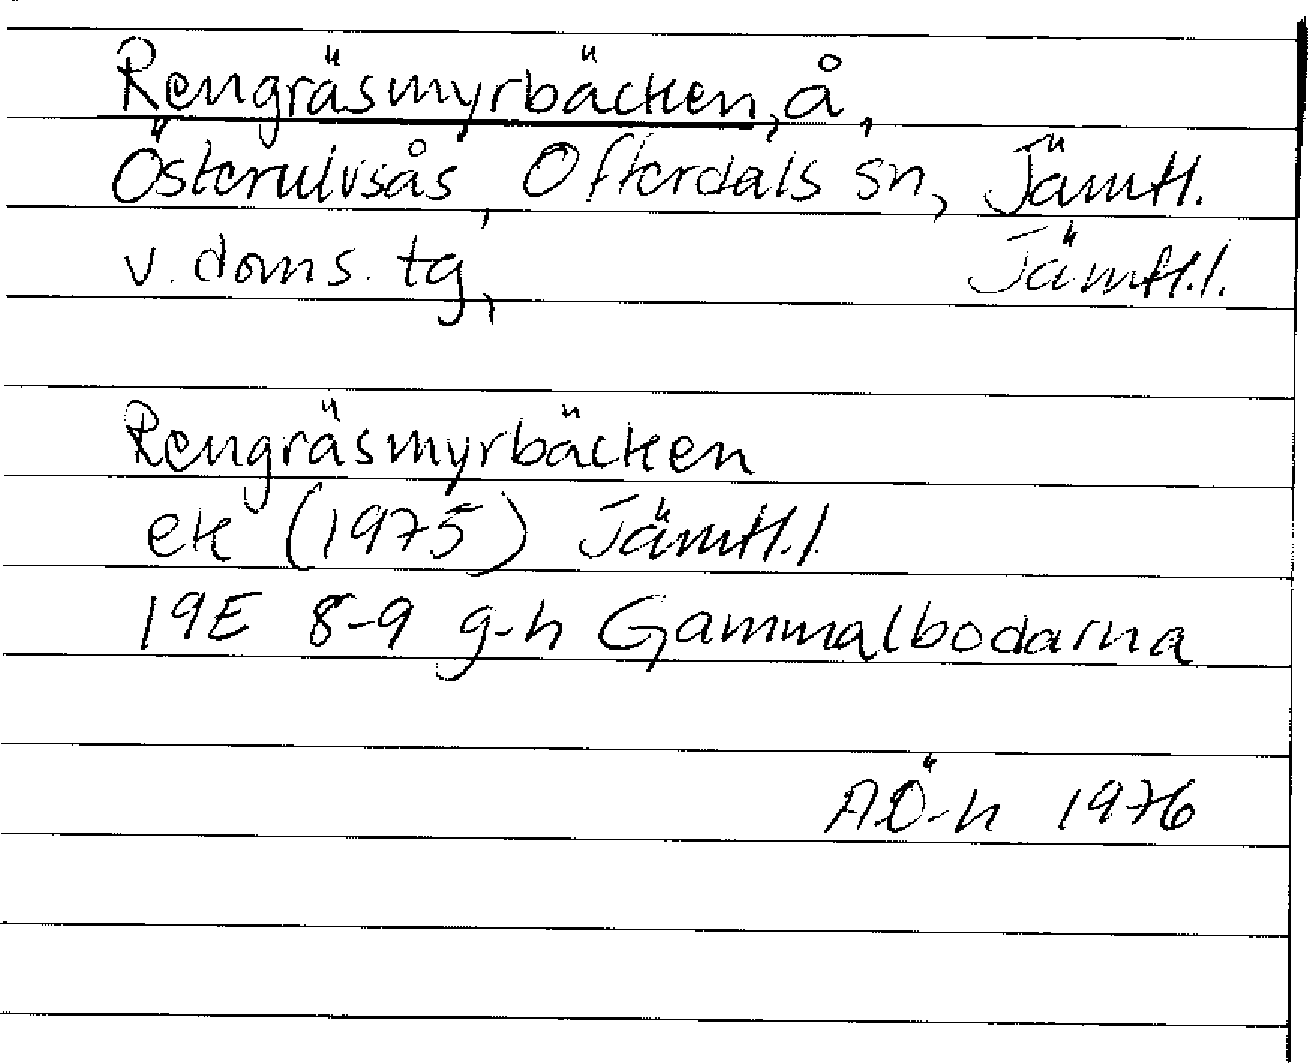 Rengräsmyrbäcken, å,
Österulvsås, Offerdals sn, Jämtl.
v. doms. tg, Jämtl.l.
Rengräsmyrbäcken
ek (1975) Jämtl.l.
19E 8-9 g-h Gammalbodarna
A.Ö-n 1976